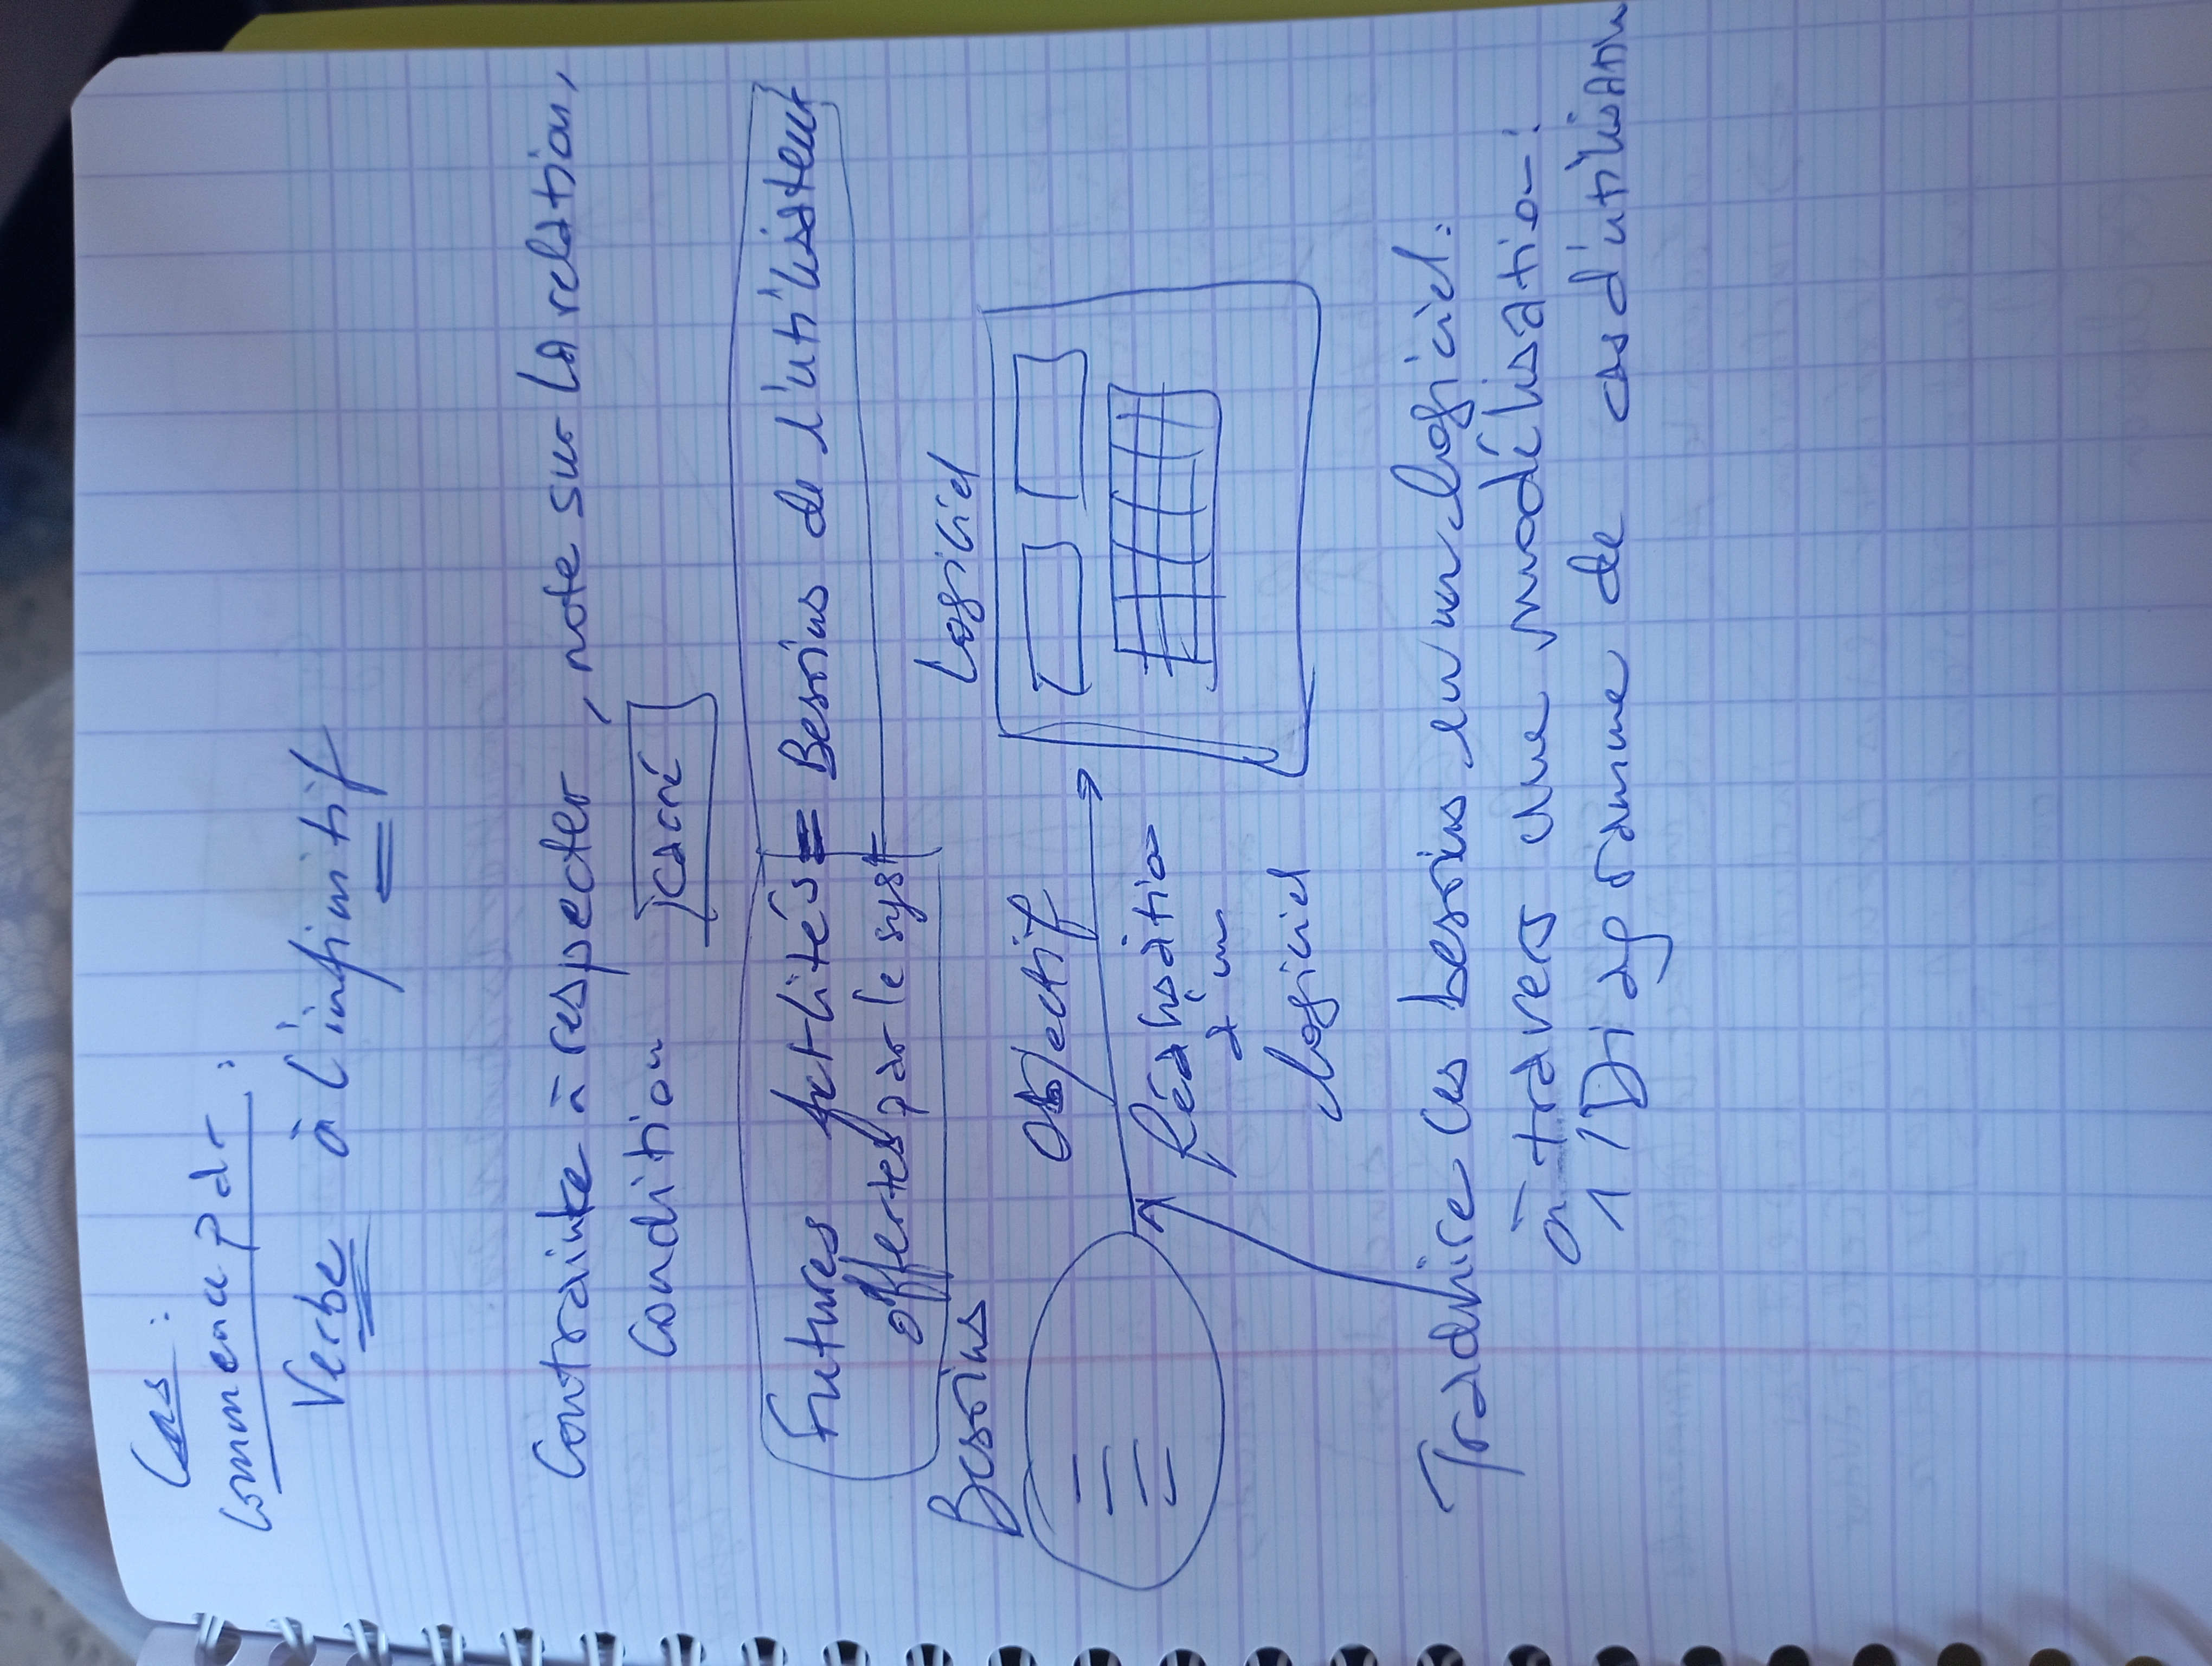 Cas :
Commence par :
Verbe à l'infinitif
Contrainte à respecter, note sur la relation,
Condition
Futures actilités = Besoins de l'utilisateur
offertes par le syst
Besoins
Logiciel
Objectif
Réalisatio
d'un
logiciel
Traduire ces besoins en un logiciel :
à travers une modélisation :
1/ Diagramme de cas d'utilisation